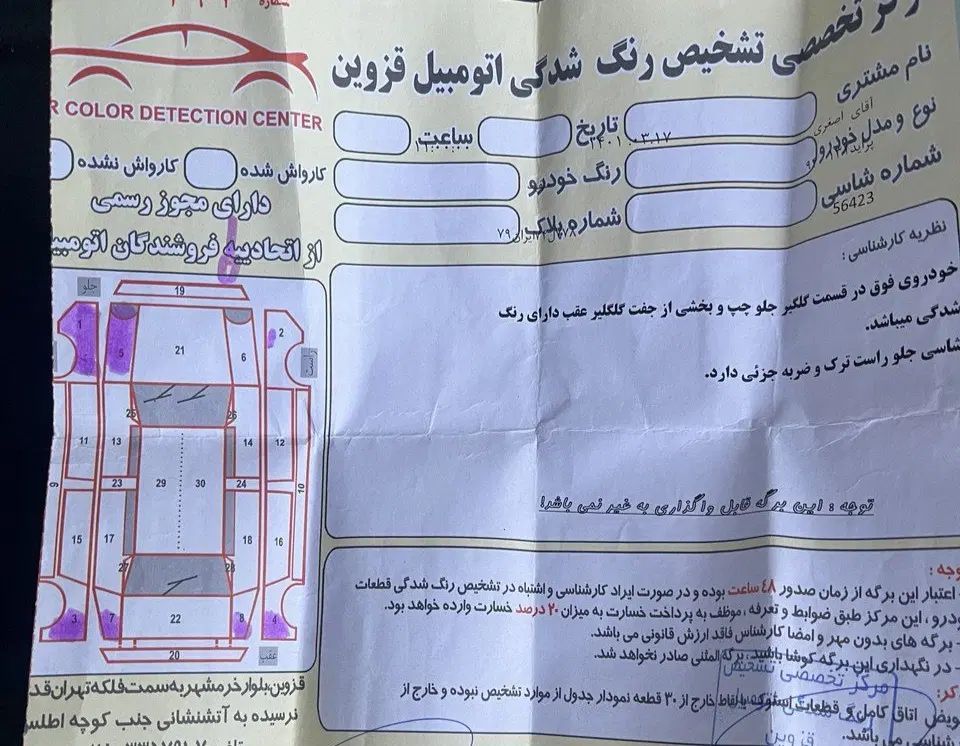 شماره
تخصصی تشخیص رنگ شدگی اتومبیل قزوین
R COLOR DETECTION CENTER
نام مشتری
آقای اصغری
تاریخ
۱۴۰۱.۰۳.۱۷
ساعت
نوع و مدل خودرو
رنگ خودرو
کارواش شده
کارواش نشده
شماره شاسی
56423
شماره پلاک
ایران ۷۹
دارای مجوز رسمی
از اتحادیه فروشندگان اتومبی
نظریه کارشناسی :
خودروی فوق در قسمت گلگیر جلو چپ و بخشی از جفت گلگیر عقب دارای رنگ
شدگی میباشد.
شاسی جلو راست ترک و ضربه جزئی دارد.
توجه : این برگه قابل واگذاری به غیر نمی باشد!
جلو
راست
عقب
19
1
5
21
6
2
25
26
11
13
14
12
9
23
29
30
24
10
15
17
18
16
27
28
3
7
22
8
4
20
وجه :
- اعتبار این برگه از زمان صدور ۴۸ ساعت بوده و در صورت ایراد کارشناسی و اشتباه در تشخیص رنگ شدگی قطعات
ودرو ، این مرکز طبق ضوابط و تعرفه ، موظف به پرداخت خسارت به میزان ۲۰ درصد خسارت وارده خواهد بود.
- برگه های بدون مهر و امضا کارشناس فاقد ارزش قانونی می باشد.
- در نگهداری این برگه کوشا باشید، برگه المثنی صادر نخواهد شد.
کر:
ویض اتاق کامل و قطعات استوک یا نقاط خارج از ۳۰ قطعه نمودار جدول از موارد تشخیص نبوده و خارج از
شناسی می باشد.
مرکز تخصصی تشخیص
قزوین
قزوین،بلوار خرمشهر به سمت فلکه تهران قد
نرسیده به آتشنشانی جنب کوچه اطلس